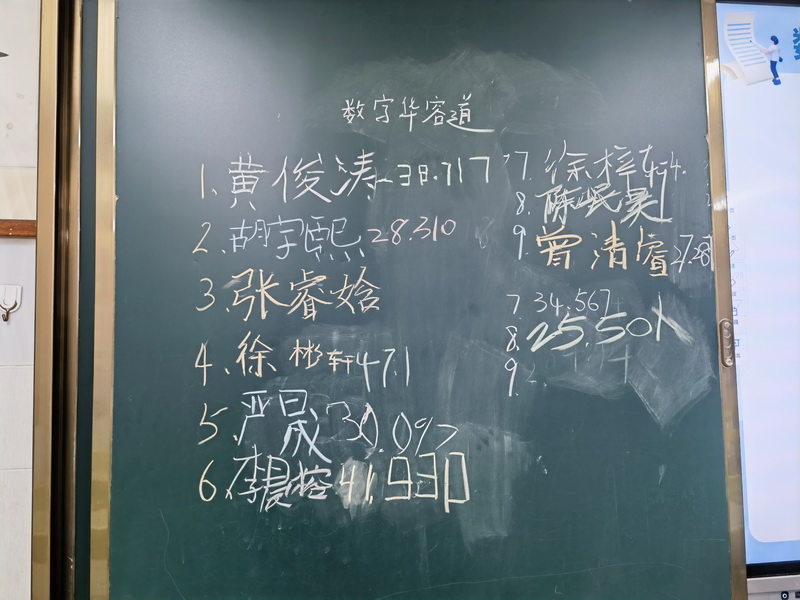 数字华容道
1.黄俊涛 38.717
2.胡宇熙 28.310
3.张睿焓
4.徐彬轩 47.1
5.严晟 30.097
6.李晨熔 41.930
7.徐梓轩 4.
8.陈岷昊
9.曾清睿 27.28
7. 34.567
8. 25.501
9.